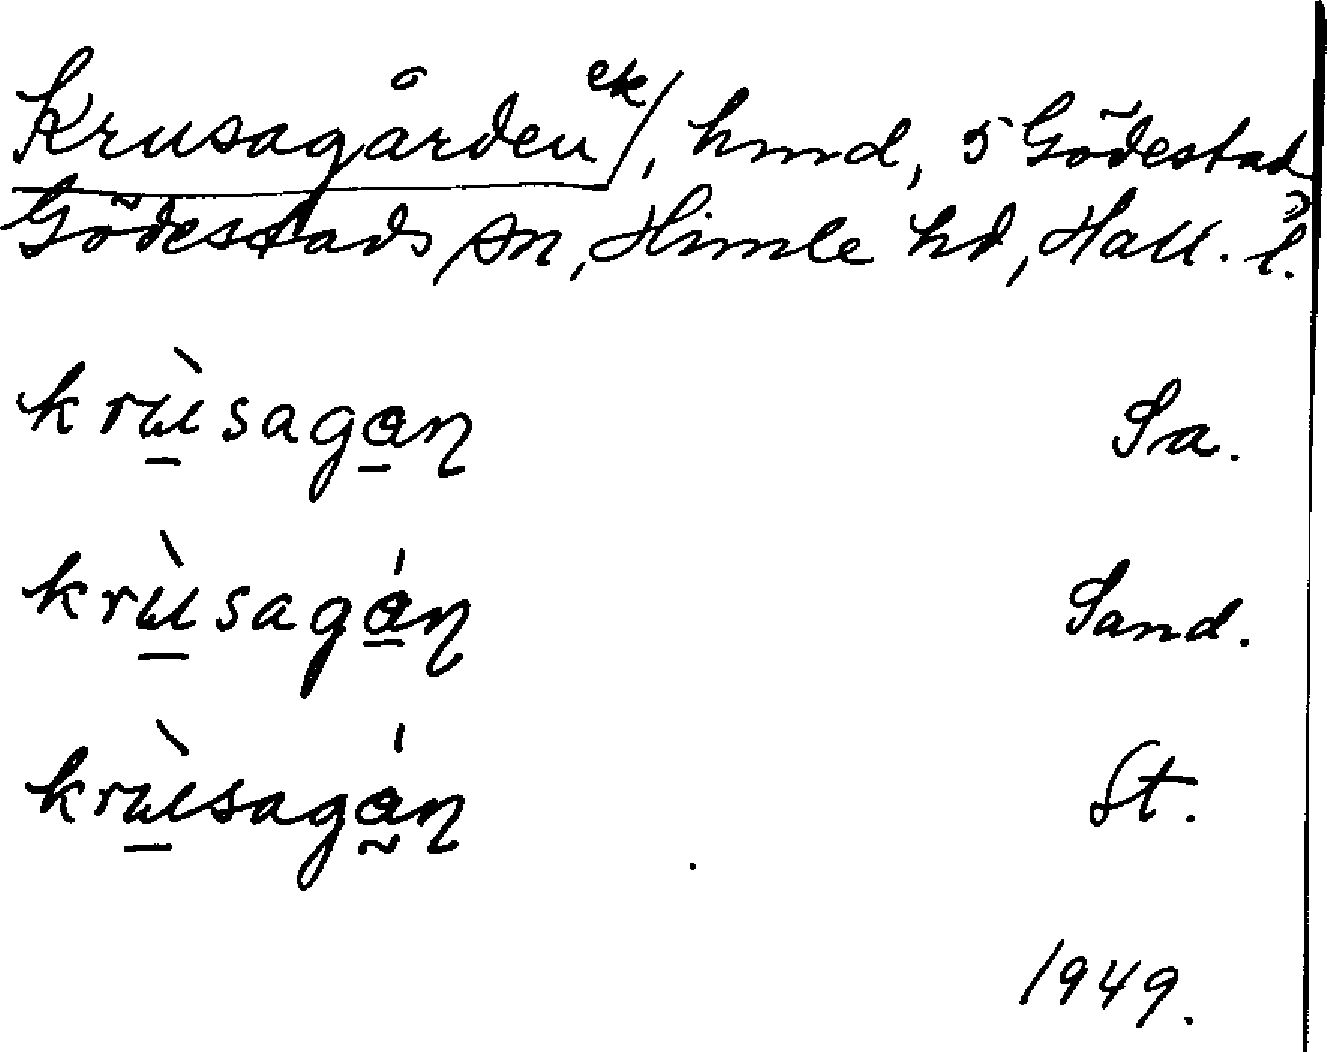 Krusagården ek/, hmd, 5 Gödestad
Gödestads sn, Himle hd, Hall. l.
krùsagan Sa.
krùsagán Sand.
krùsagán St.
1949.